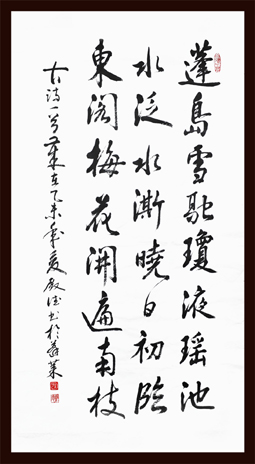 蓬島雪融瓊液瑤池
水泛水澌曉日初臨
東閣梅花開遍南枝
古詩一首歲在乙未年夏書於